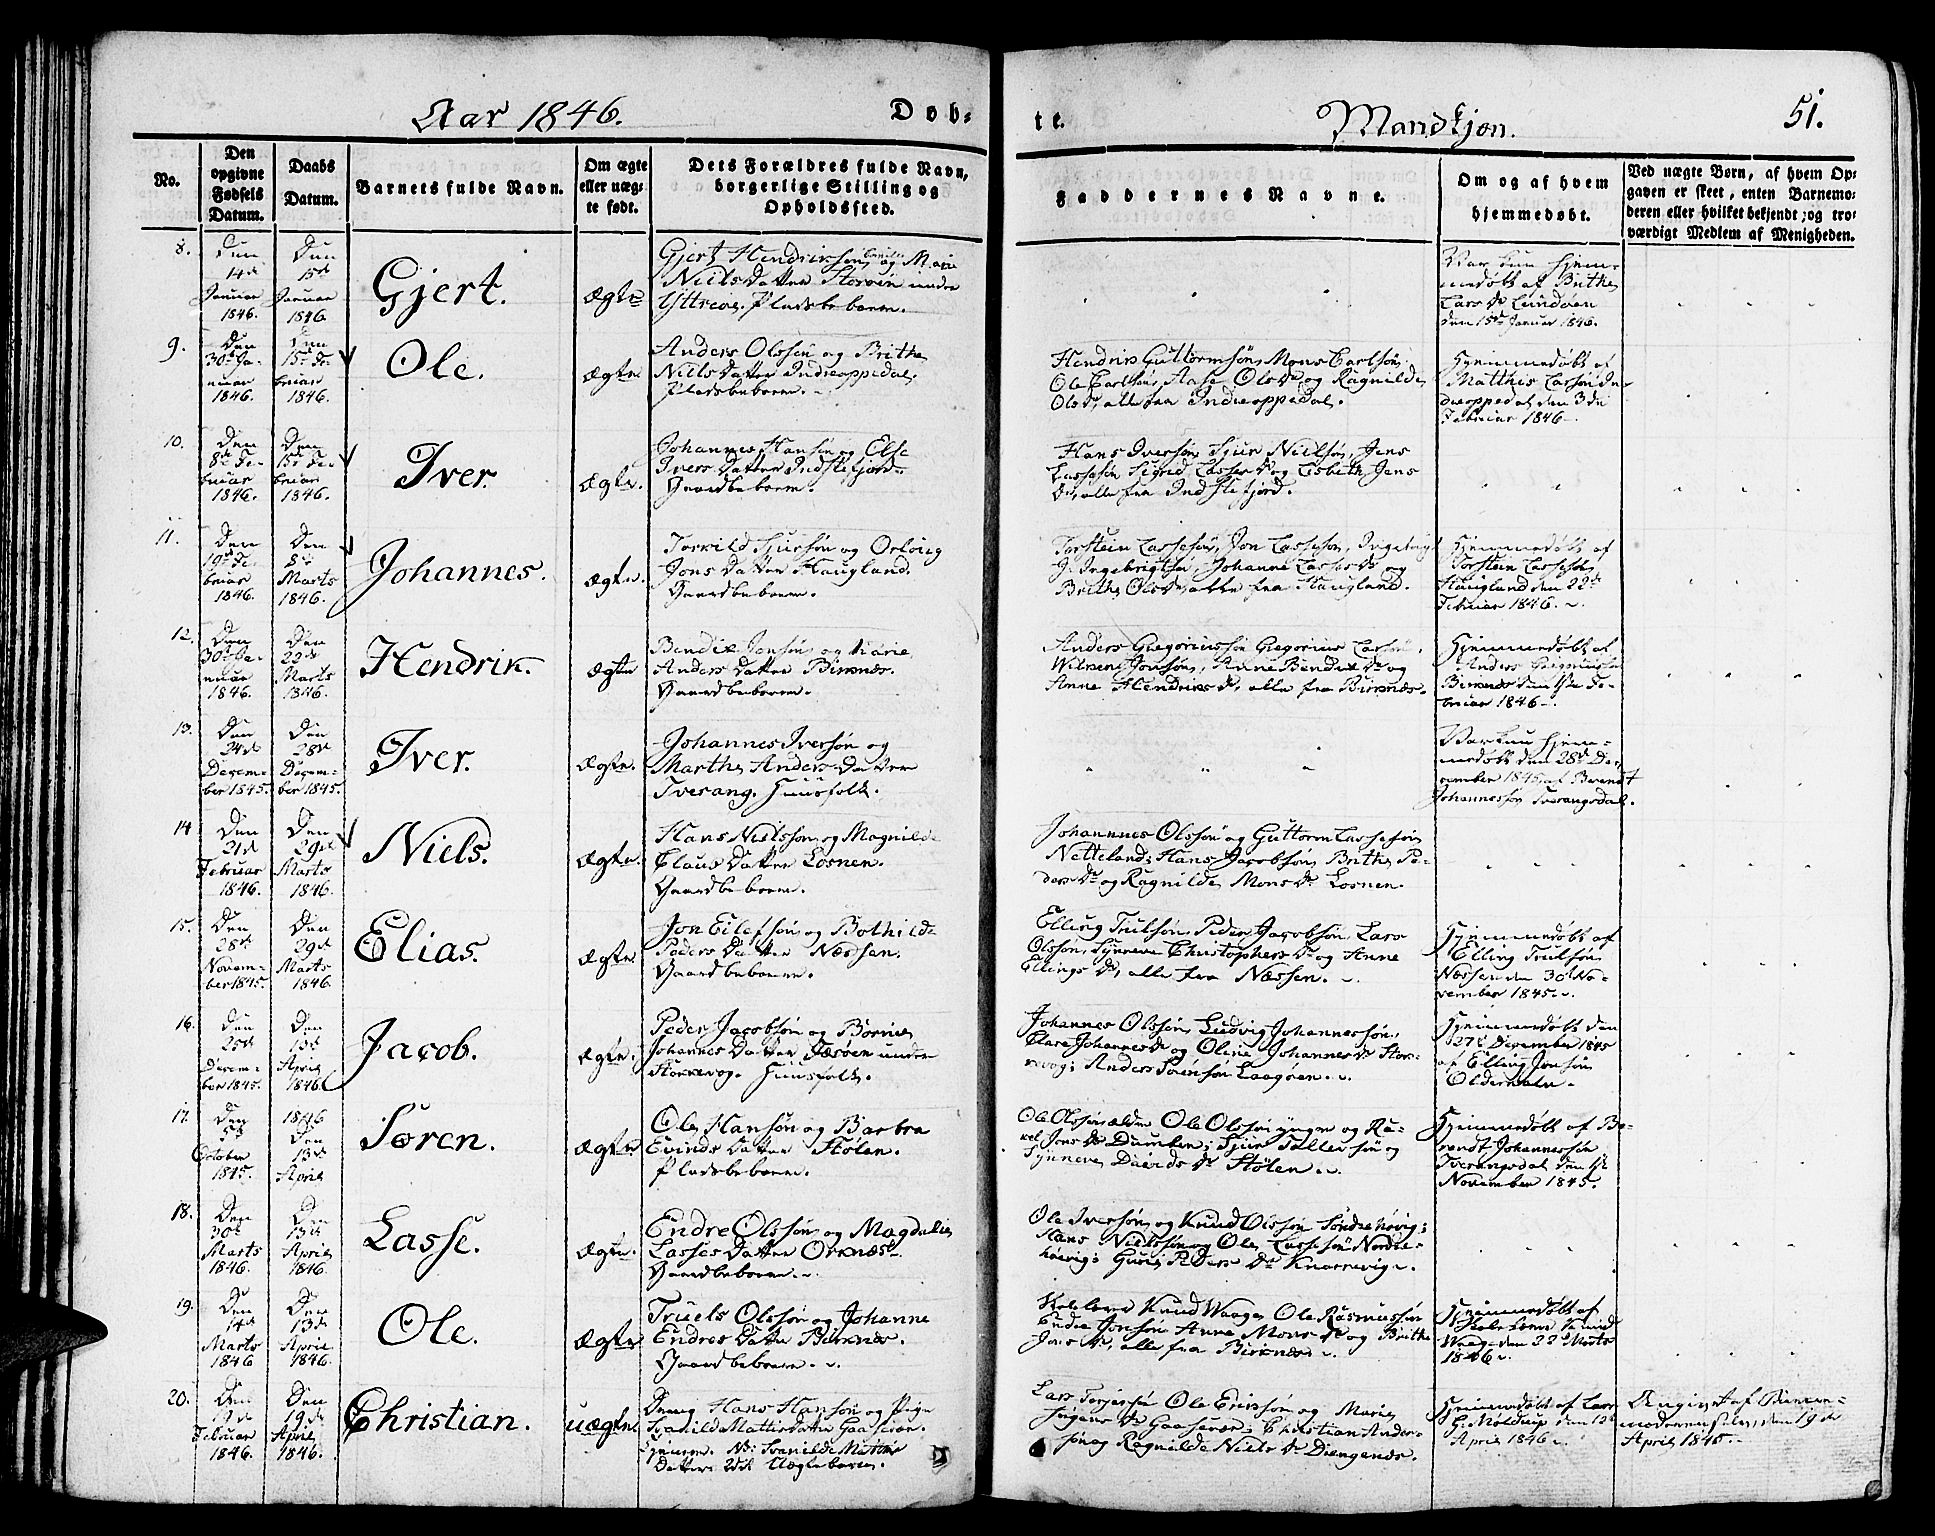 Aar 1846.
Døb-
te.
Mandkjøn.
51.
No.
Den opgivne Fødsels Datum.
Daabs Datum.
Barnets fulde Navn.
Om ægte eller uægte født.
Dets Forældres fulde Navn, borgerlige Stilling og Opholdssted.
Faddernes Navne.
Om og af hvem hjemmedøbt.
Ved uægte Børn, af hvem Opgaven er skeet, enten Barnemoderen eller hvilket bekjendt og troværdigt Medlem af Menigheden.
8.
Den 14de Januar 1846.
Den 15de Januar 1846.
Gjert.
Ægte
Gjert Hendriksøn og Mari
Niels Datter Storvin under
Yttreøe. Pladsbeboere.
Var kun hjem-
medøbt af Brithe
Lars Dr
den 15de Januar 1846.
9.
Den 30te Januar 1846.
Den 15de Februar 1846.
Ole.
Ægte.
Anders Olssøn og Brithe
Niels Datter Indreoppedal.
Pladsbeboere.
Hendrik Guttormsøn, Mons Carlsøn,
Ole Carlsøn, Aase Ols Dr og Ragnilde
Ols Dr, alle fra Indreoppedal.
Hjemmedøbt af
Matthis Lassøn In-
dreoppedal den 3die
Februar 1846.
10.
Den 8de Februar 1846.
Den 15de Februar 1846.
Iver.
Ægte.
Johannes Hansøn og Else
Ivers Datter Indstefjord.
Gaardbeboere.
Hans Iversøn, Sjur Nielsøn, Jens
Lassesøn, Sigrid Lasses Dr og Lisbeth Jens
Dr, alle fra Indstefjord.
11.
Den 19de Februar 1846.
Den 8de Marts 1846.
Johannes.
Ægte.
Torkild Sjursøn og
Jons Datter Haugland.
Gaardbeboere.
Torstein Lassesøn, Jon Lassesøn,
Ingebrigtsøn, Johanne Lasses Dr og
Brithe Ols Dr, alle fra Haugland.
Hjemmedøbt af
Torstein Lassesøn
Haugland den 22de
Februar 1846.
12.
Den 30te Januar 1846.
Den 22de Marts 1846.
Hendrik.
Ægte
Bendix Jonsøn og Kari
Anders Datter Birknes.
Gaardbeboere.
Anders Gregoriussøn, Gregorius Larsøn,
Jonsøn, Anne Bendix Dr og
Anne Hendriks Dr, alle fra Birknes.
Hjemmedøbt af
Anders Gregoriussøn
Birknes den 1ste Fe-
bruar 1846.
13.
Den 24de December 1845.
Den 28de December 1845.
Iver.
Ægte.
Johannes Iversøn og
Marthe Anders Datter
Tverang. Huusfolk.
Var kun hjem-
medøbt den 28de De-
cember 1845, af Berendt
Johannessøn Tverangsdal.
14.
Den 21de Februar 1846.
Den 29de Marts 1846.
Niels.
Ægte.
Hans Nielssøn og Magnilde
Claus Datter Losnen.
Gaardbeboere.
Johannes Olssøn og Guttorm Lassesøn
Netteland; Hans Jacobsøn, Brithe Pe-
ders Dr og Ragnilde Mons Dr Losnen.
15.
Den 28de November 1845.
Den 29de Marts 1846.
Elias.
Ægte.
Jon Eilefsøn og Bothilde
Peders Datter Næssen.
Gaardbeboere.
Elling Trulsøn, Peder Jacobsøn, Lars
Olssøn, Synneve Christophers Dr og Anne
Ellings Dr, alle fra Næssen.
Hjemmedøbt af
Elling Trulsøn
Næssen den 30te No-
vember 1845.
16.
Den 25de December 1845.
Den 13de April 1846.
Jacob.
Ægte.
Peder Jacobsøn og
Johannes Datter under
Storrevog. Huusfolk.
Johannes Olssøn, Ludvig Johannessøn,
Clara Johannes Dr og Oline Johannes Dr Stor-
revog; Anders Sørensøn
Hjemmedøbt den
27de December 1845
af Elling Jonsøn
17.
Den 5te October 1845.
1846 Den 13de April
Søren.
Ægte
Ole Hansøn og Barbra
Evinds Datter Stølen.
Pladsbeboere.
Ole Olssøn ældre, Ole Olssøn yngre og Ra-
kel Jons Dr; Sjur Tollevsøn og
Synneve Davids Dr Stølen.
Hjemmedøbt af Be-
rendt Johannessøn
Tverangsdal den 1ste
November 1845.
18.
Den 30te Marts 1846.
Den 13de April 1846.
Lasse.
Ægte.
Endre Olssøn og Magdeli
Lasses Datter Ornæs.
Gaardbeboere.
Ole Iversøn og Knud Olssøn Søndrehovig;
Hans Nielssøn og Ole Lassesøn Nordre-
hovig; Guri Peders Dr
19.
Den 14de Marts 1846
Den 13de April 1846.
Ole.
Ægte
Truels Olssøn og Johanne
Endres Datter Birknes.
Gaardbeboere.
Skolelærer Knud Waage, Ole Rasmussøn
Endre Jonsøn, Anne Mons Dr og Brithe
Jons Dr, alle fra Birknes.
Hjemmedøbt af
Skolelærer Knud
Waage den 22de Marts
1846.
20.
Den 19de Februar 1846.
Den 19de April 1846.
Christian.
uægte.
Dreng Hans Hansøn og Pige
Svanilde Matthis Datter
NB: Svanilde Matthis
Datters 2det Uægtebarn.
Lars Torjersøn, Ole Erikssøn og Mari
Christian Anders-
søn og Ragnilde Niels Dr Dingenes.
Hjemmedøbt af Lars
G. Moldrup den 12te
April 1846.
Angivet af Barne-
moderen selv, den 19de
April 1845.